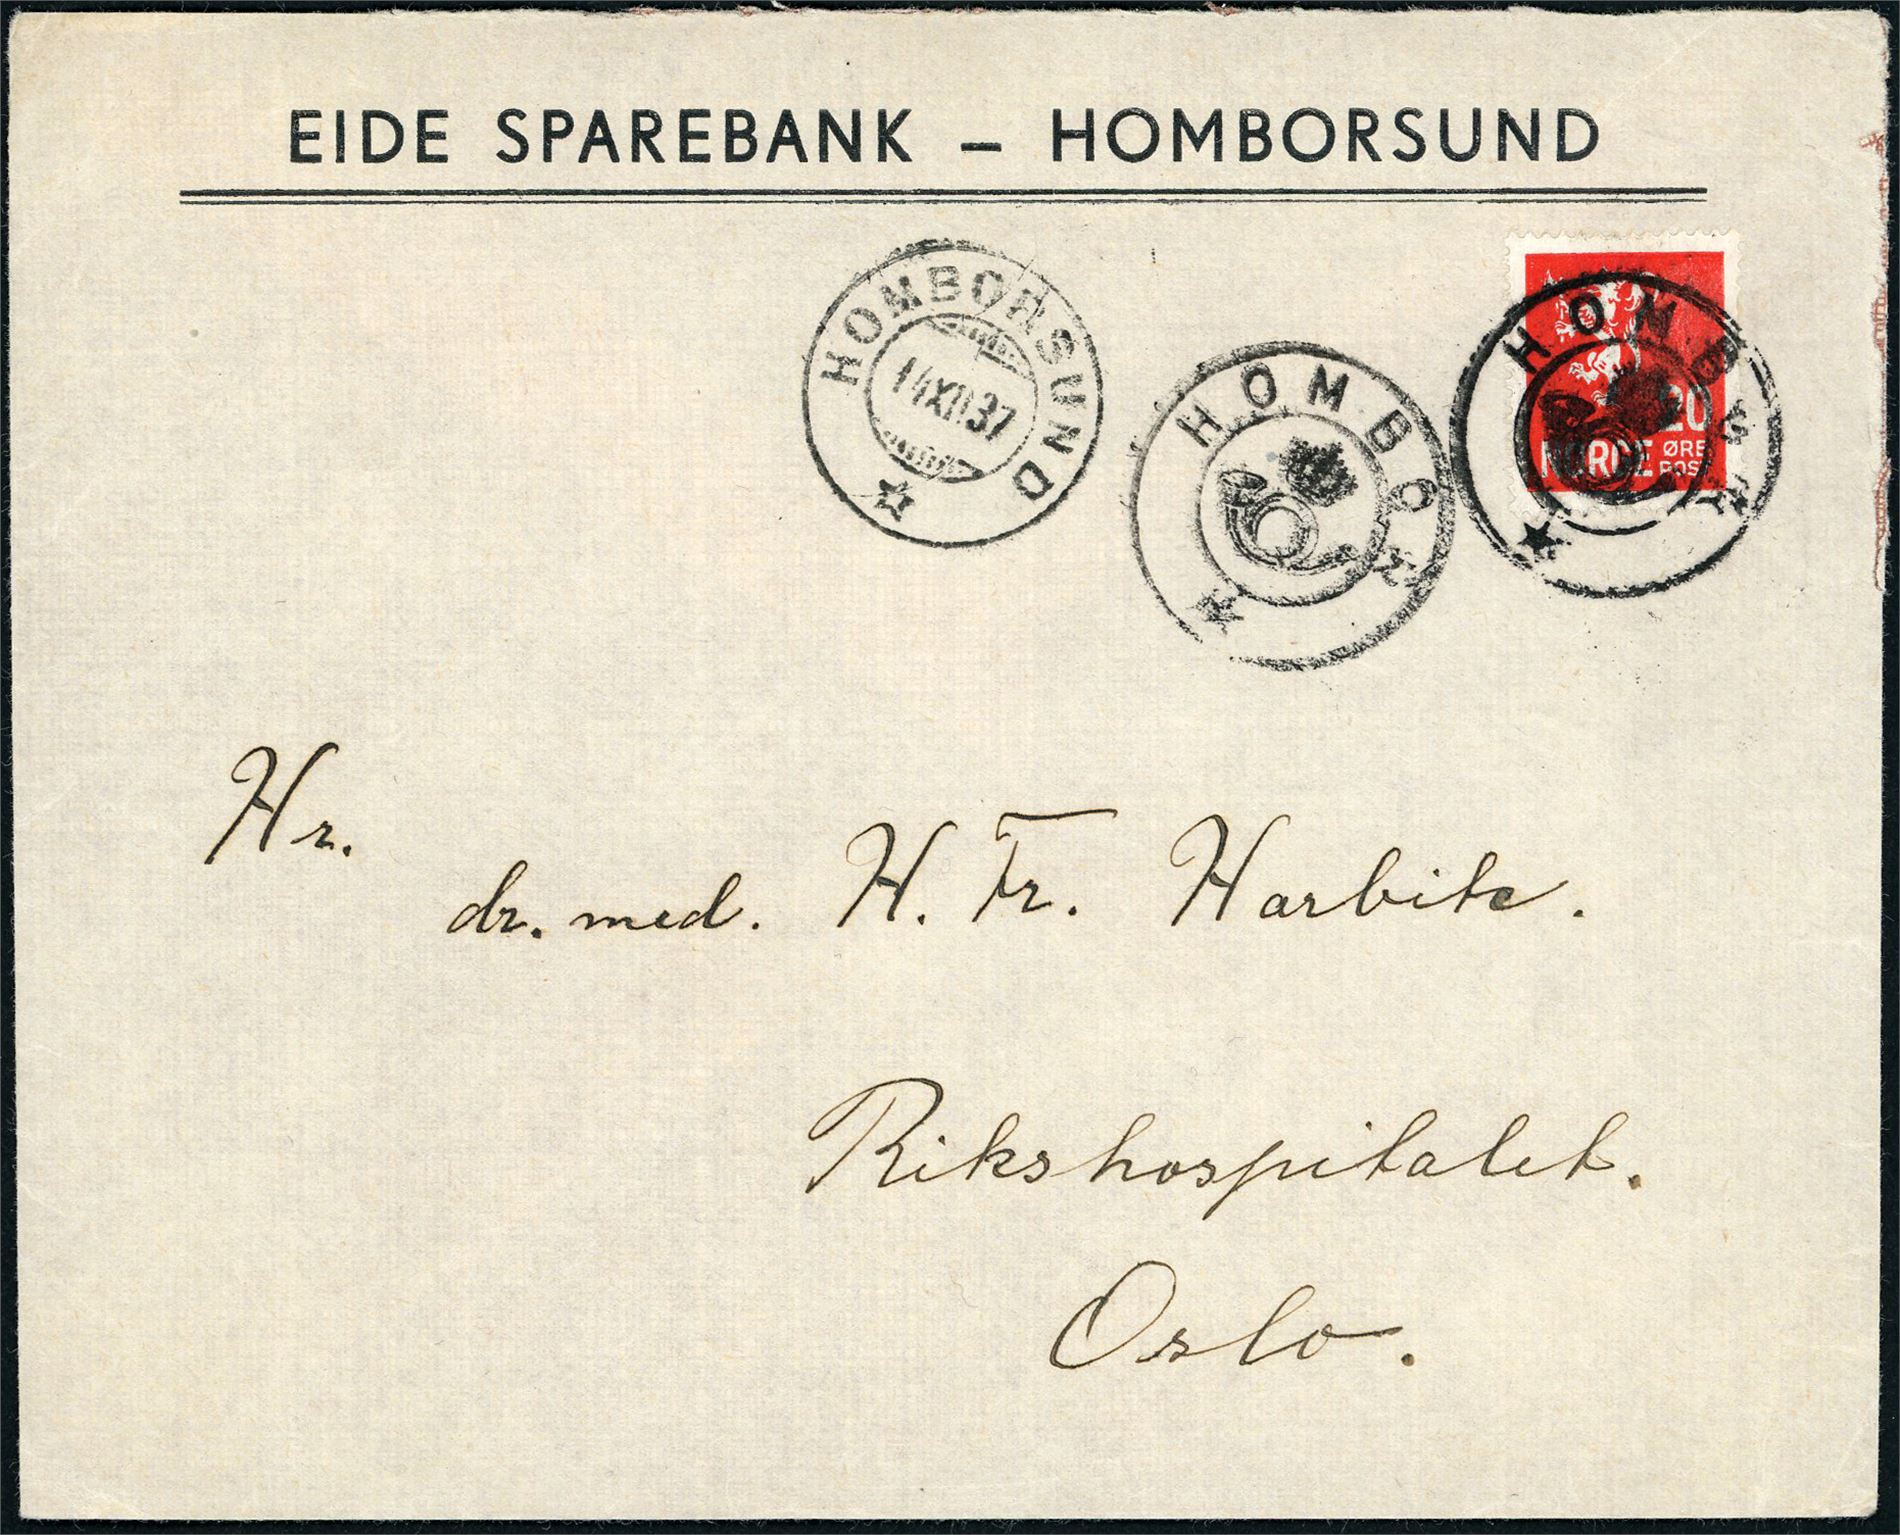 EIDE SPAREBANK – HOMBORSUND
HOMBORSUND
14 XII 37
HOMBO
HOMB
20
NORGE ØRE
POST
Hr.
dr. med. H. Fr. Harbitz.
Rikshospitalet.
Oslo.